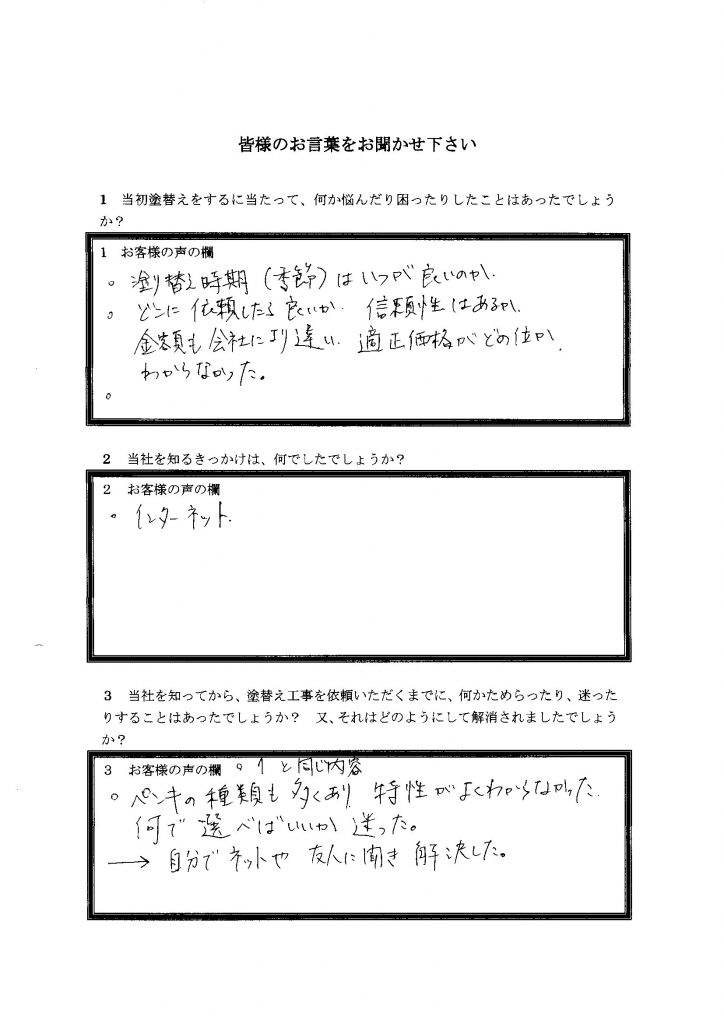 皆様のお言葉をお聞かせ下さい
1 当初塗替えをするに当たって、何か悩んだり困ったりしたことはあったでしょう
か?
1 お客様の声の欄
。塗り替え時期(季節)はいつが良いのか.
。どこに依頼したら良いか. 信頼性はあるか.
金額も会社により違い. 適正価格がどの位か.
わからなかった。
。
2 当社を知るきっかけは、何でしたでしょうか?
2 お客様の声の欄
。インターネット.
3 当社を知ってから、塗替え工事を依頼いただくまでに、何かためらったり、迷った
りすることはあったでしょうか? 又、それはどのようにして解消されましたでしょう
か?
3 お客様の声の欄 。1と同じ内容
。ペンキの種類も多くあり 特性がよくわからなかった.
何で選べばいいか迷った。
→ 自分でネットや友人に聞き解決した。